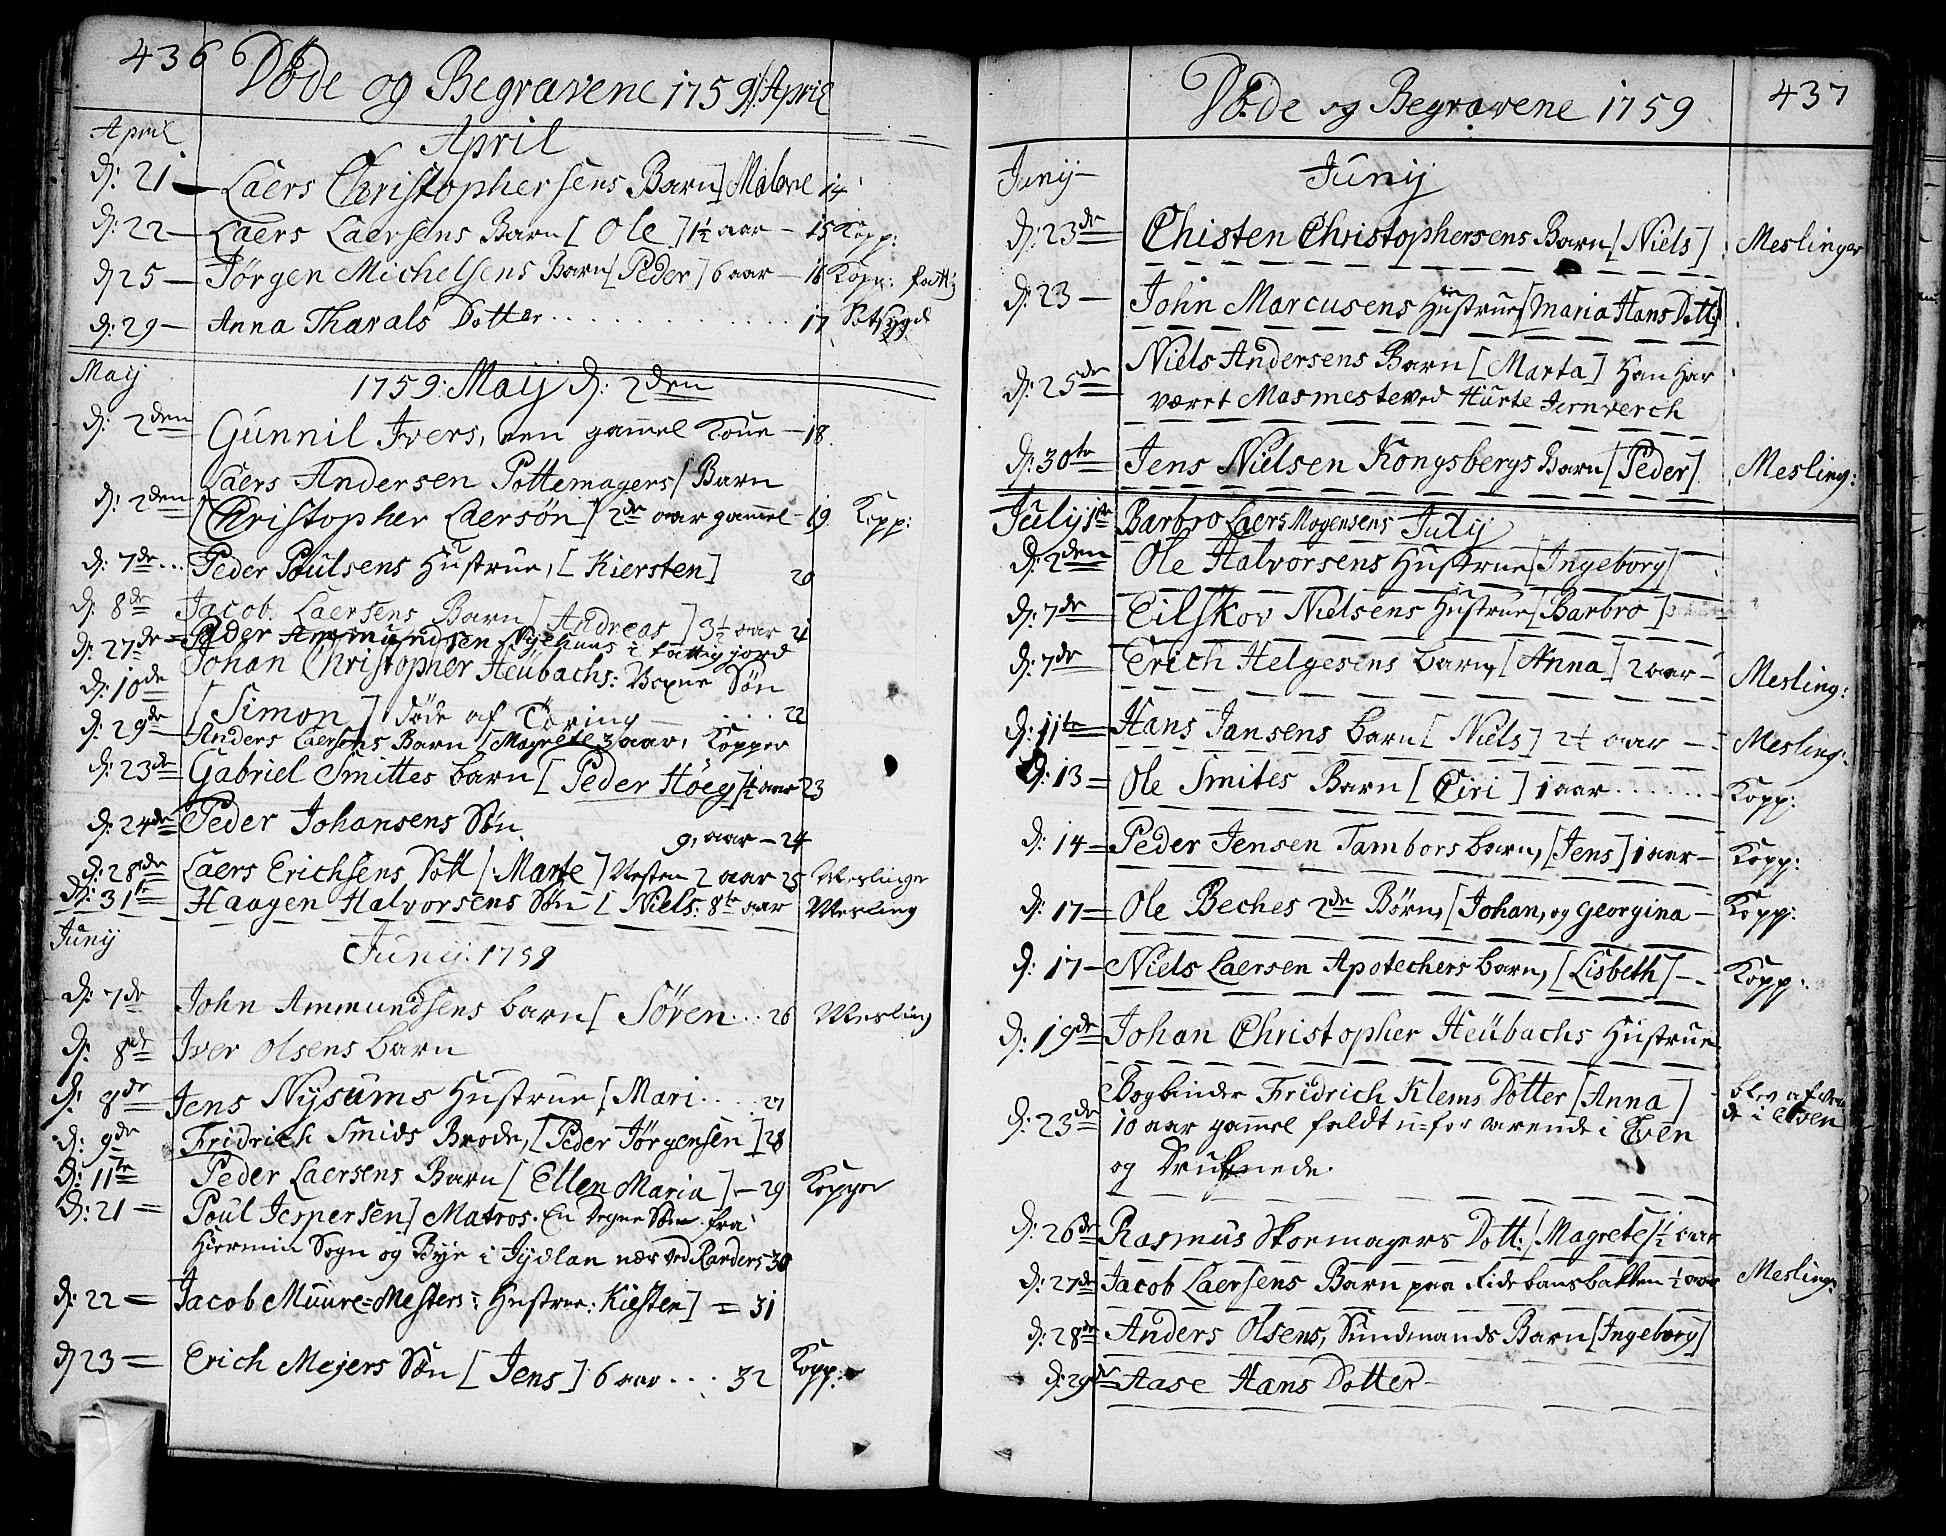 436
Døde og Begravene 1759 /: April
April
April
d: 21 — Laers Christophersens Barn] Malene 14
d: 22 — Laers Laersens Barn [ Ole ] 1½ aar — 15 Kopp:
d 25 — Jørgen Michelsens Barn [ Peder ] 6 aar — 16 Kopp: fattig
d: 29 — Anna Tharals Dotter . . . . . . 17
Maij
1759: Maij d: 2den
d: 2den Gunnil Ivers, een gammel Kone — 18.
Laers Andersen Pottemagers / Barn
d: 2den [Christopher Laersøn] 2de aar gammel — 19 Kopp:
d: 7de . . . Peder Poulsens Hustrue, [ Kiersten ] 20
d: 8de Jacob Laersens Barn [ Andreas ] 3½ aar 21
d: 27de = Peder Ammundsen Nyehuus i fattig jord
d: 10de Johan Christopher Heubachs: Voxne Søn
[ Simon ] døde af Tæring — . . . . 22
d: 29de Anders Laersens Barn [ Magrete 3 aar, Kopper
d: 23de Gabriel Smittes barn [ Peder Höeg ] ½ aar 23
d: 24de Peder Johansens Søn. 9, aar — 24
d: 28de Laers Erichsens Dott [: Marte ] Nesten 2 aar 25 Meslinge
d: 31te Haagen Halvorsens Søn [ Niels: 8te aar Mesling
Junij
Junij: 1759
d: 7de John Ammundsens barn [ Søren . . . 26 Mesling
d: 8de Iver Olsens barn
d: 8de Jens Nysums Hustrue [ Mari . . . . 27
d: 9de Fridrich Smids Brode, [ Peder Jørgensen ] 28
d: 11te Peder Laersens Barn [ Ellen Maria ] — 29 Kopper
d: 21 = Poul Jespersen ] Matros. En Degne Søn fra
Hiermin Sogn og Bye i Jydlan nær ved Randers 30
d: 22 = Jacob Muure=Mesters: Hustrue: Kiesten ] = 31
d 23 = Erich Mejers Søn [ Jens ] 6 aar . . . 32 Kopp:
Døde og Begravene 1759
437
Junij —
Junij
d: 23de Chisten Christophersens Barn [ Niels ] Meslinger
d: 23 — John Marcusens Hustrue [ Maria Hans Dott ]
Niels Andersens Barn [ Marta ] Han Har
d: 25de været Masmester ved Hurte Jernverch
d: 30te Jens Nielsen Kongsbergs Barn [ Peder ] Mesling:
Julij 1te Barbro Laers Mogensens Julij
d: 2den Ole Halvorsens Hustrue [ Ingeborg ]
d: 7de Eilskov Nielsens Hustrue [ Barbro ]
d: 7de Erich Helgesens barn, [ Anna ] 2 aar — Mesling:
d: 11te Hans Jansens barn [ Niels ] 2½ aar — Mesling:
d: 13 = Ole Smites Barn [ Eiri ] 1 aar . . . . . . Kopp:
d: 14 = Peder Jensen Tambors barn, [ Jens ] 1 aar — Kopp:
d: 17 = Ole Beches 2de Børn, [ Johan, og Georgina — Kopp:
d: 17 — Niels Laersen Apotechers barn, [ Lisbeth ] — Kopp:
d: 19de Johan Christopher Heubachs Hustrue
Bogbinder Fridrich Klems Dotter [ Anna ]
d: 23de 10 aar gammel faldt u=for varende i Elven
og Druknede.
d: 26de Rasmus Skomagers Dott: [ Magrete ] ½ aar
d: 27de Jacob Laersens Barn paa Ridebansbakken ½ aar Mesling:
d: 28de Anders Olsens, Sundmands Barn [ Ingeborg ]
d: 29de Aase Hans Dotter —